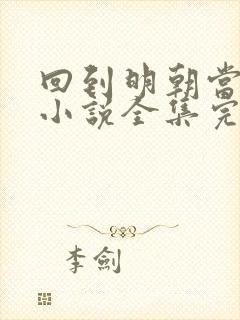 回到明朝當
小說全集完
李劍